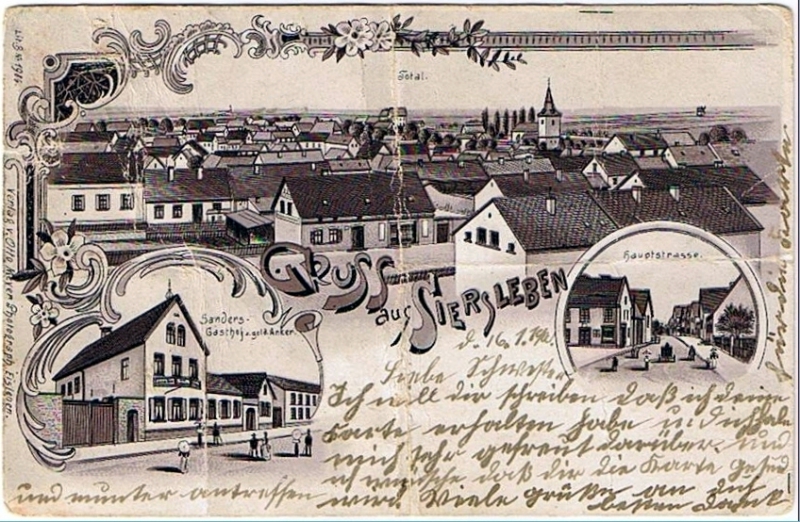 Total.
Verlag v. Otto Mayer Photograph Eisleben.
Gruss
aus Siersleben
Hauptstrasse.
Sanders-
Gasthof z. gold. Anker.
d. 16. 1.
Liebe Schwester
Ich will dir schreiben daß ich deine
Karte erhalten habe und ich habe
mich sehr gefreut darüber. und
ich wünsche daß dir die Karte gesund
und munter antreffen wird. Viele grüße an dich
besten Dank